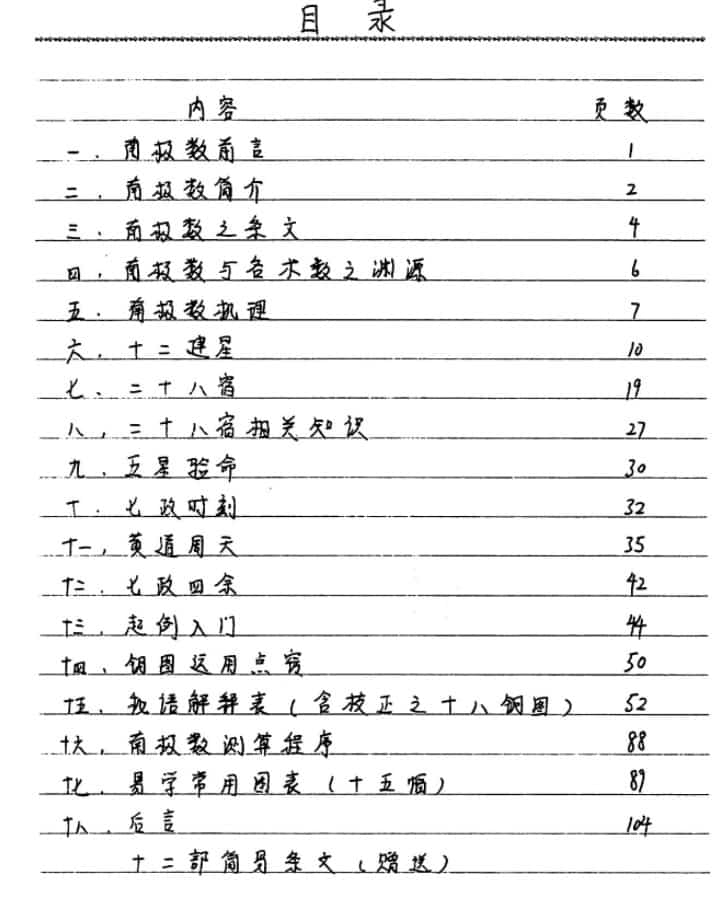 目 录
内容 页数
一．南极数前言 1
二．南极数简介 2
三．南极数之条文 4
四．南极数与各术数之渊源 6
五．南极数机理 7
六．十二建星 10
七、二十八宿 19
八，二十八宿相关知识 27
九．五星验命 30
十．七政时刻 32
十一，黄道周天 35
十二．七政四余 42
十三．起例入门 44
十四、钥图运用点窍 50
十五．秘语解释表（含校正之十八钥图） 52
十六，南极数测算程序 88
十七．易学常用图表（十五幅） 89
十八．后言 104
十二部简易条文（赠送）